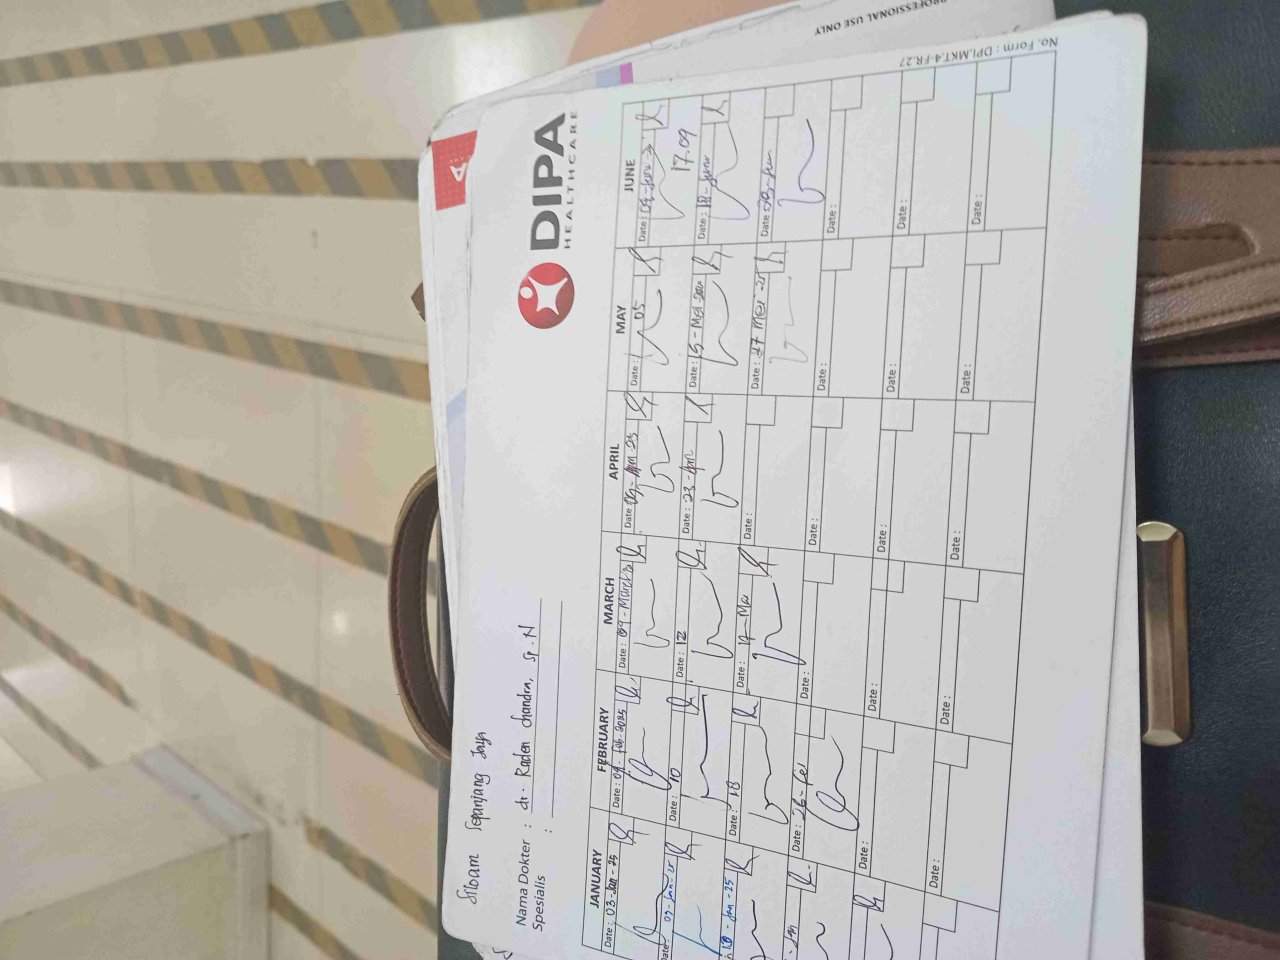 PROFESSIONAL USE ONLY
No. Form : DPI.MKT.4-FR.27
DIPA
HEALTHCARE
Siloam Sepanjang Jaya
Nama Dokter : dr. Raden Chandra, Sp.N
Spesialis :
JANUARY FEBRUARY MARCH APRIL MAY JUNE
Date : 03-Jan-25 Date : 04-Feb-2025 Date : 09- Date : 09- Date : 05 Date : 04-
17.09
Date : 10 Date : 12 Date : 23-Apr Date : 15-Mei Date : 18-June
Date : 18 Date : Date : Date : 27 Mei-25 Date :
Date : 26-Feb Date : Date : Date : Date :
Date : Date : Date : Date : Date :
Date : Date : Date : Date : Date :